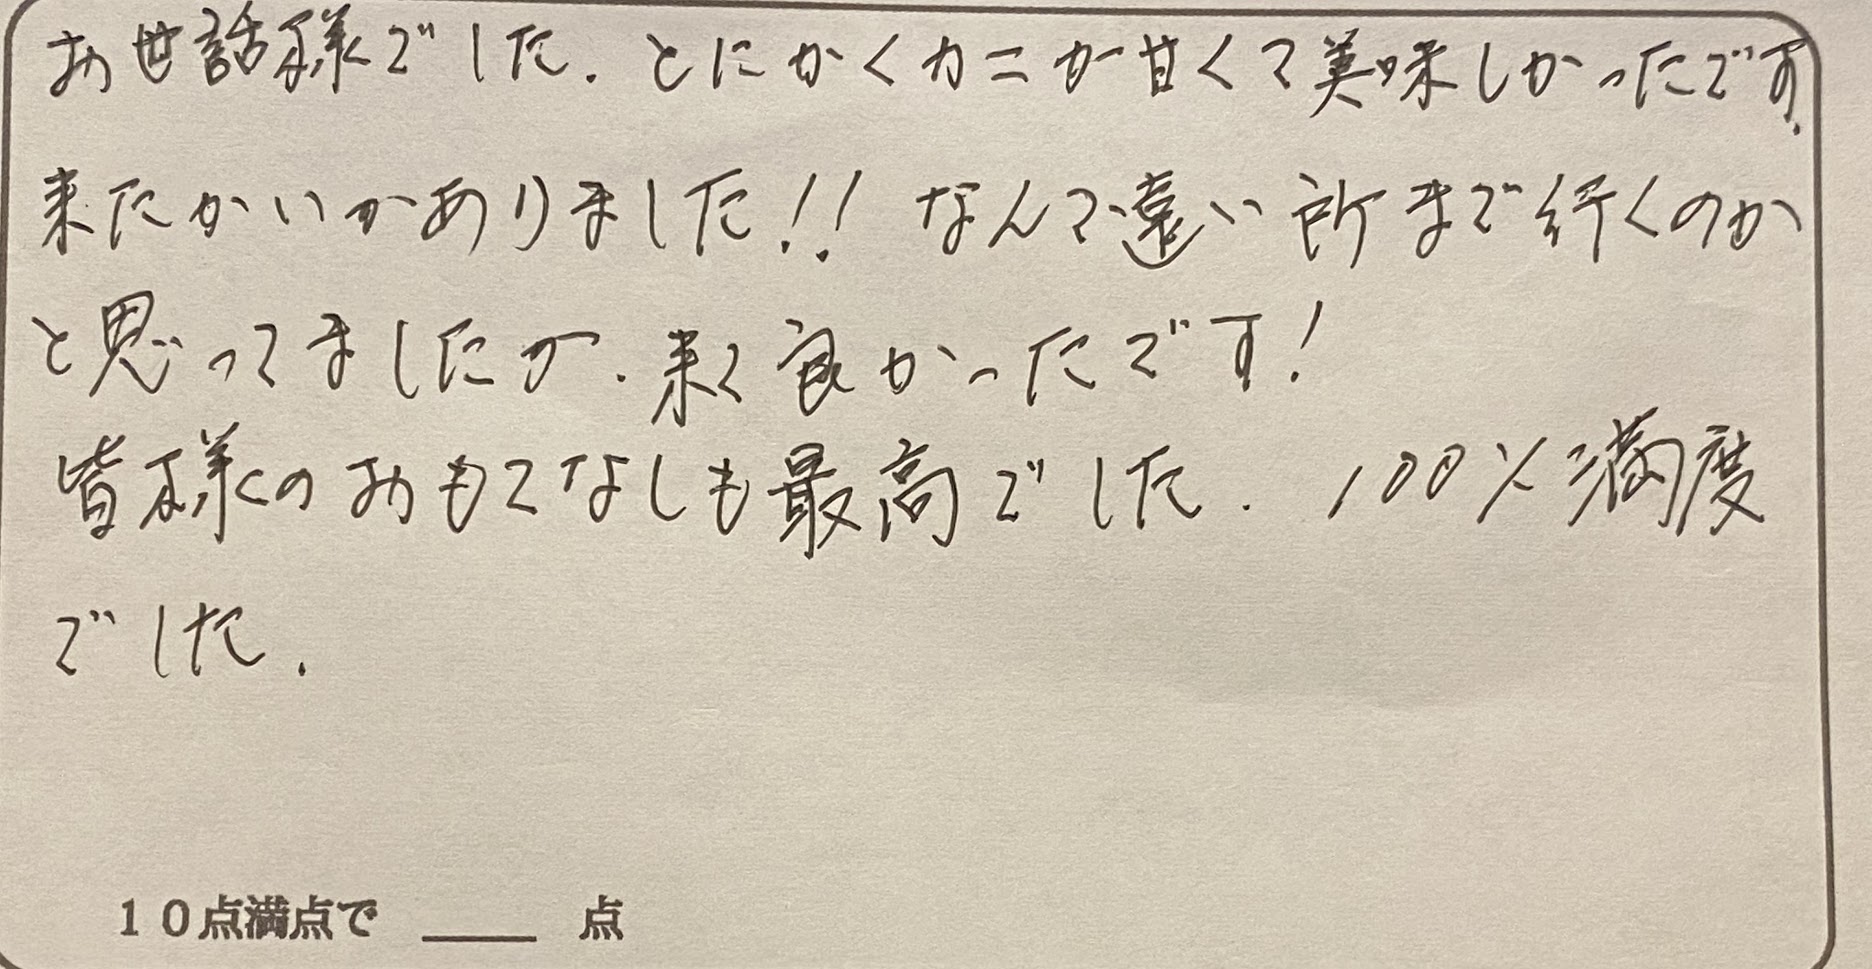 お世話様でした。とにかくカニが甘くて美味しかったです。
来たかいがありました!! なんで遠い所まで行くのか
と思ってましたが、来て良かったです!
皆様のおもてなしも最高でした。100%満度
でした。
10点満点で ____ 点